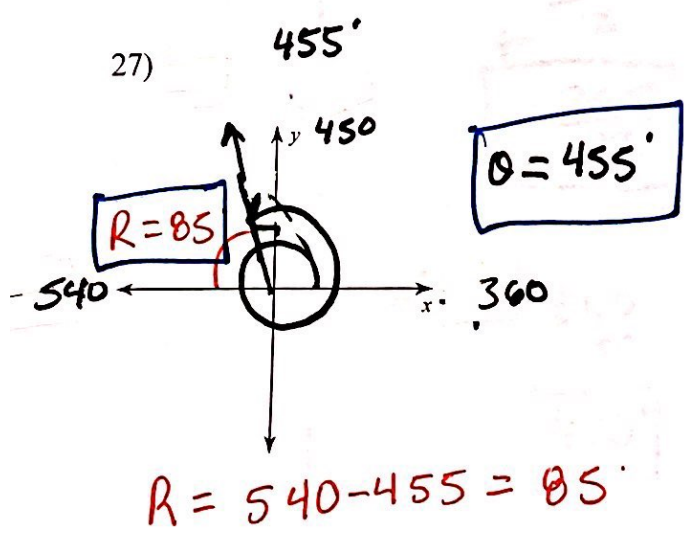 455°
27)
y 450
θ = 455°
R = 85
- 540
x. 360
R = 540-455 = 85°